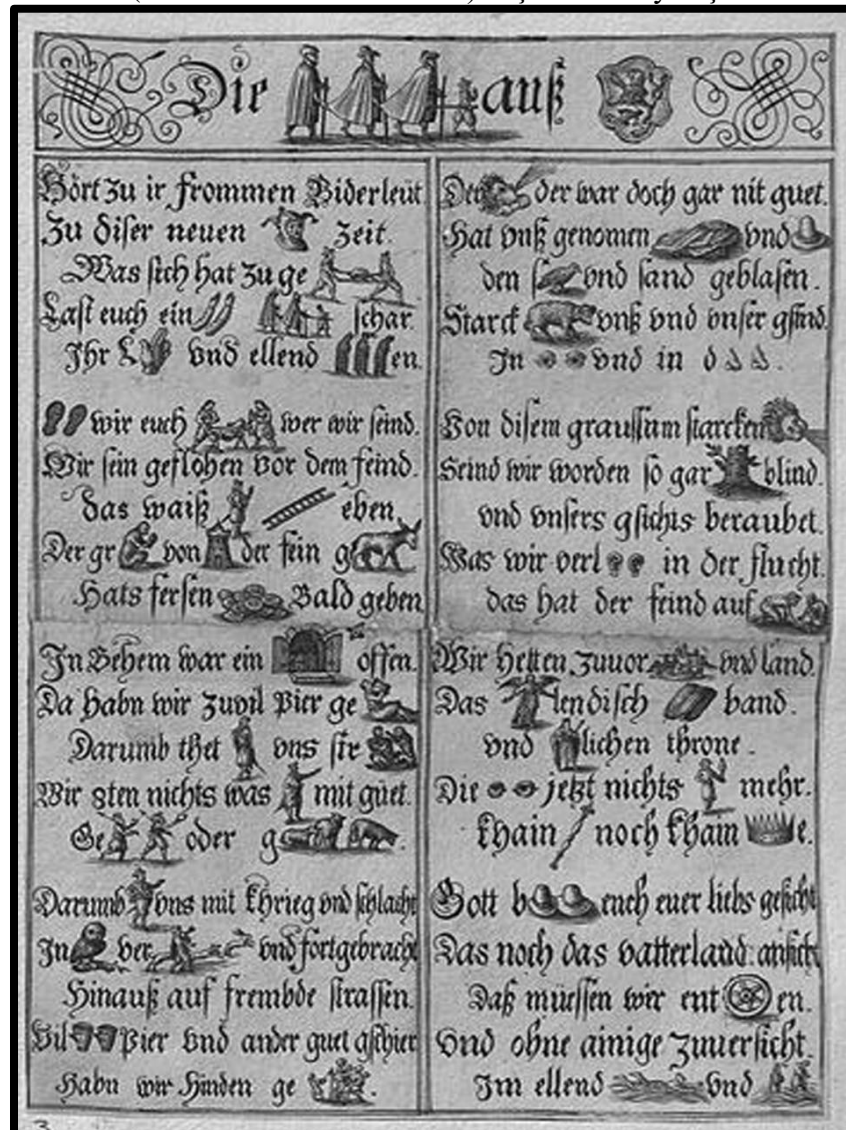 Die auß
Hört zu ir frommen Biderleüt
Zu diser neuen zeit.
Was sich hat zu ge
Last euch ein schar
Ihr L vnd ellend en
wir euch wer wir seind.
Wir sein geflohen vor dem feind.
das waiß eben
Der gr von der fein g
Hats fersen Bald geben
In Behem war ein offen.
Da habn wir zuvil Pier ge
Darumb thet vns str
Wir 8ten nichts was mit guet.
Ge oder g .
Darumb vns mit Khrieg vnd schlacht
In ver vnd fortgebracht
Hinauß auf frembde strassen.
Vil Pier vnd ander guet gschier
Habn wir hinden ge .
Der der war doch gar nit guet.
Hat vnß genomen vnd
den s vnd sand geblasen.
Starck vnß vnd vnser gsind.
In vnd in d .
Von disem graussam starcken
Seind wir worden so gar blind.
vnd vnsers gsichts beraubet.
Was wir verl in der flucht.
das hat der feind auf
Wir hetten zuuor vnd land.
Das lendisch band.
vnd lichen throne.
Die jetzt nichts mehr.
Khain noch Kham e.
Gott b euch euer liebs gesicht
Das noch das vatterland ansicht
Daß müessen wir ent en.
Vnd ohne ainige zuuersicht.
Im ellend vnd
3